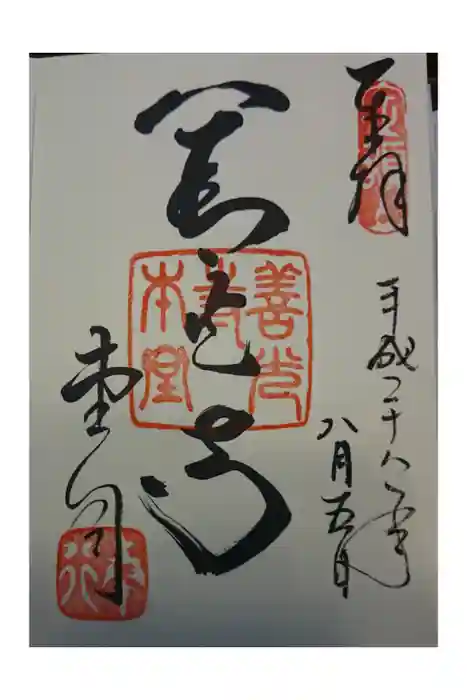 奉拝
平成二十八年
八月五日
善光寺
善光寺
本堂